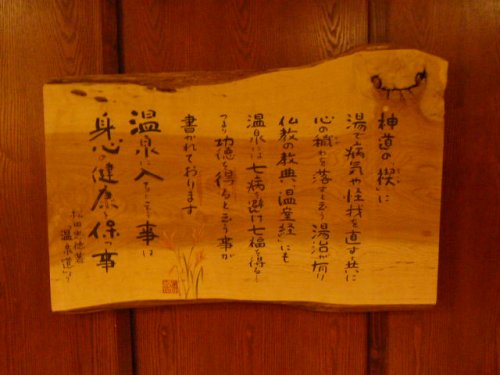 神道の「禊」に
湯で病気や怪我を直すと共に
心の穢れを落すと云う湯治が有り
仏教の教典「温室経」にも
温泉には七病を避け七福を得る
つまり功徳を得ると云う事が
書かれております
温泉に入ると云う事は
身心の健康を保つ事
松田忠徳著
温泉道より